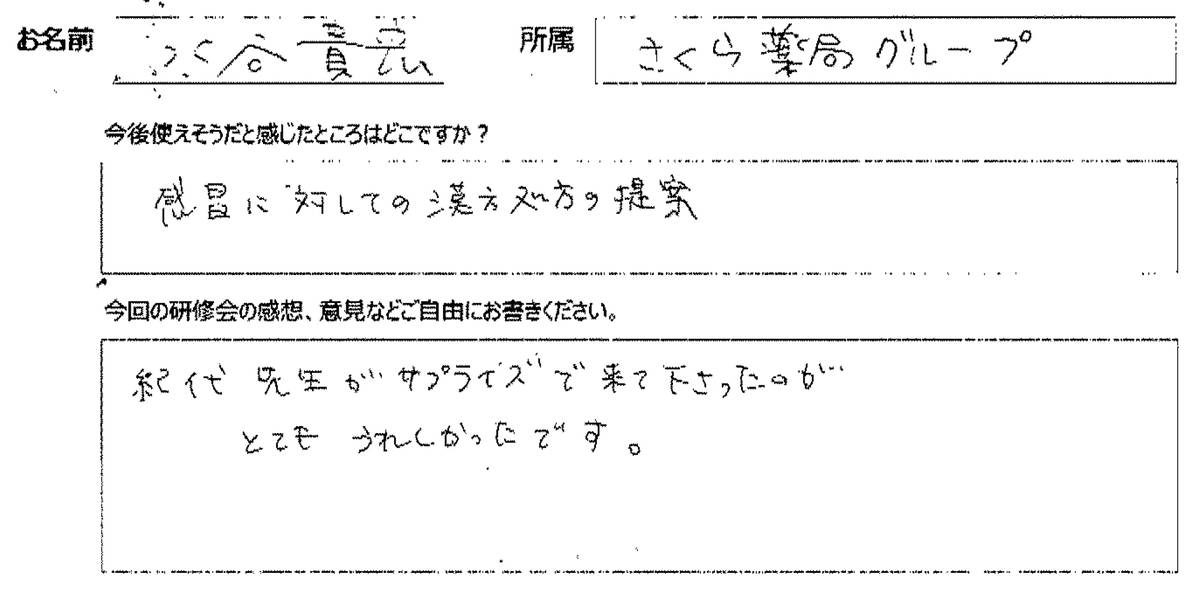 お名前 水谷 所属 さくら薬局グループ
今後使えそうだと感じたところはどこですか?
感冒に対しての漢方処方の提案
今回の研修会の感想、意見などご自由にお書きください。
紀代先生がサプライズで来て下さったのが
とてもうれしかったです。